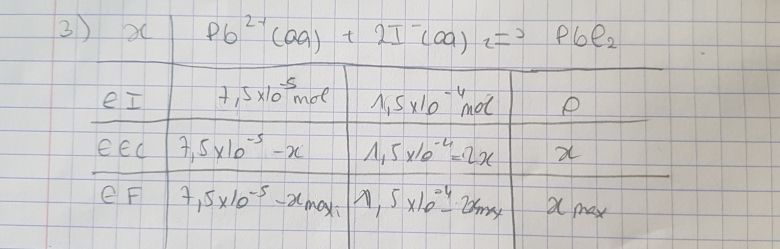 3) x Pb²⁺(aq) + 2I⁻(aq) <=> PbI₂
EI 7,5x10⁻⁵ mol 1,5x10⁻⁴ mol 0
EEC 7,5x10⁻⁵ - x 1,5x10⁻⁴ - 2x x
EF 7,5x10⁻⁵ - xmax 1,5x10⁻⁴ - 2xmax x max